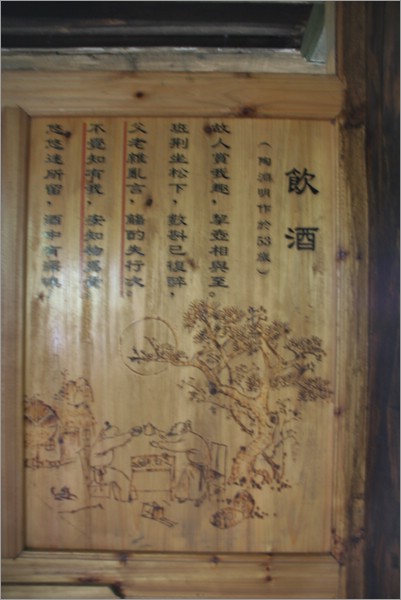 飲酒
(陶淵明作於53歲)
故人賞我趣,挈壺相與至。
班荊坐松下,數斟已復醉,
父老雜亂言,觴酌失行次。
不覺知有我,安知物為貴。
悠悠迷所留,酒中有深味。